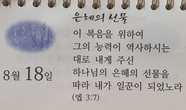 은혜의 선물
이 복음을 위하여
그의 능력이 역사하시는
대로 내게 주신
하나님의 은혜의 선물을
따라 내가 일꾼이 되었노라
(엡 3:7)
8월 18일